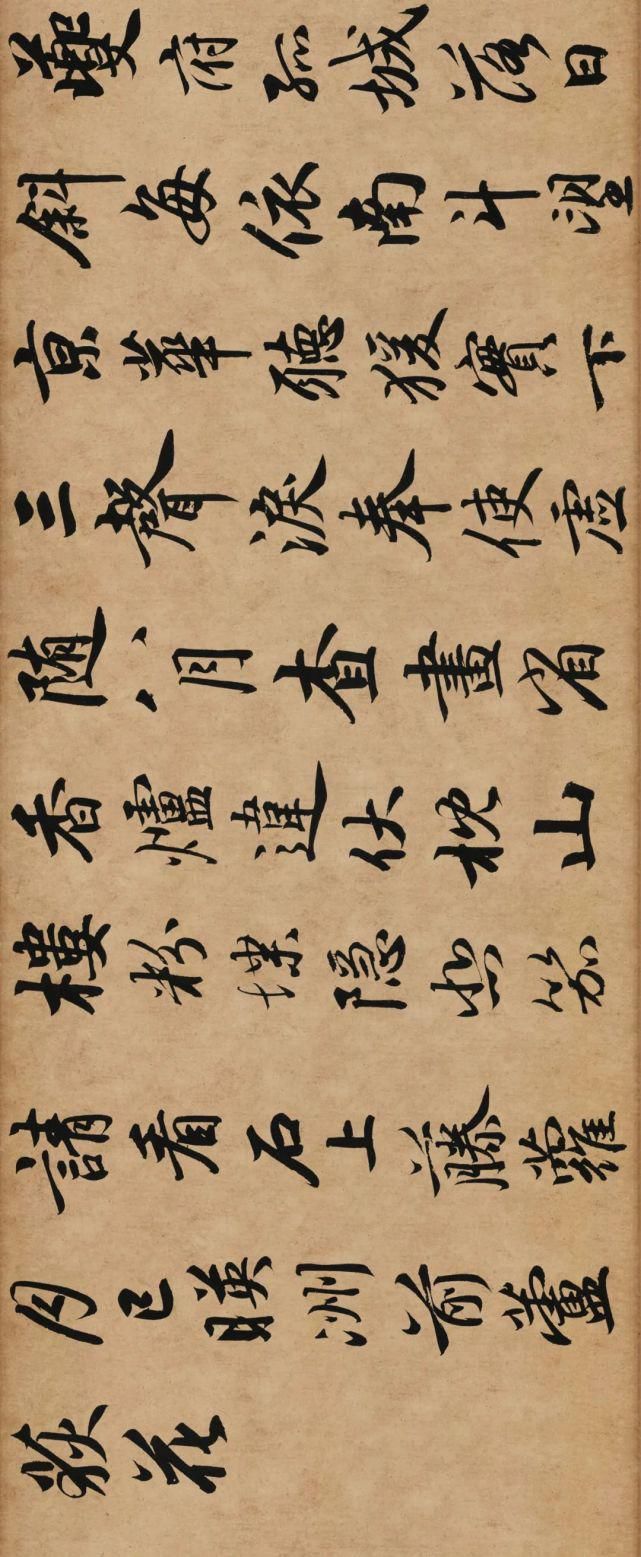 夔府孤城落日
斜每依南斗望
京華聽猨實下
三聲淚奉使虛
随八月查畫省
香爐違伏枕山
樓粉堞隱悲笳
請看石上藤蘿
月已暎洲前蘆
荻花